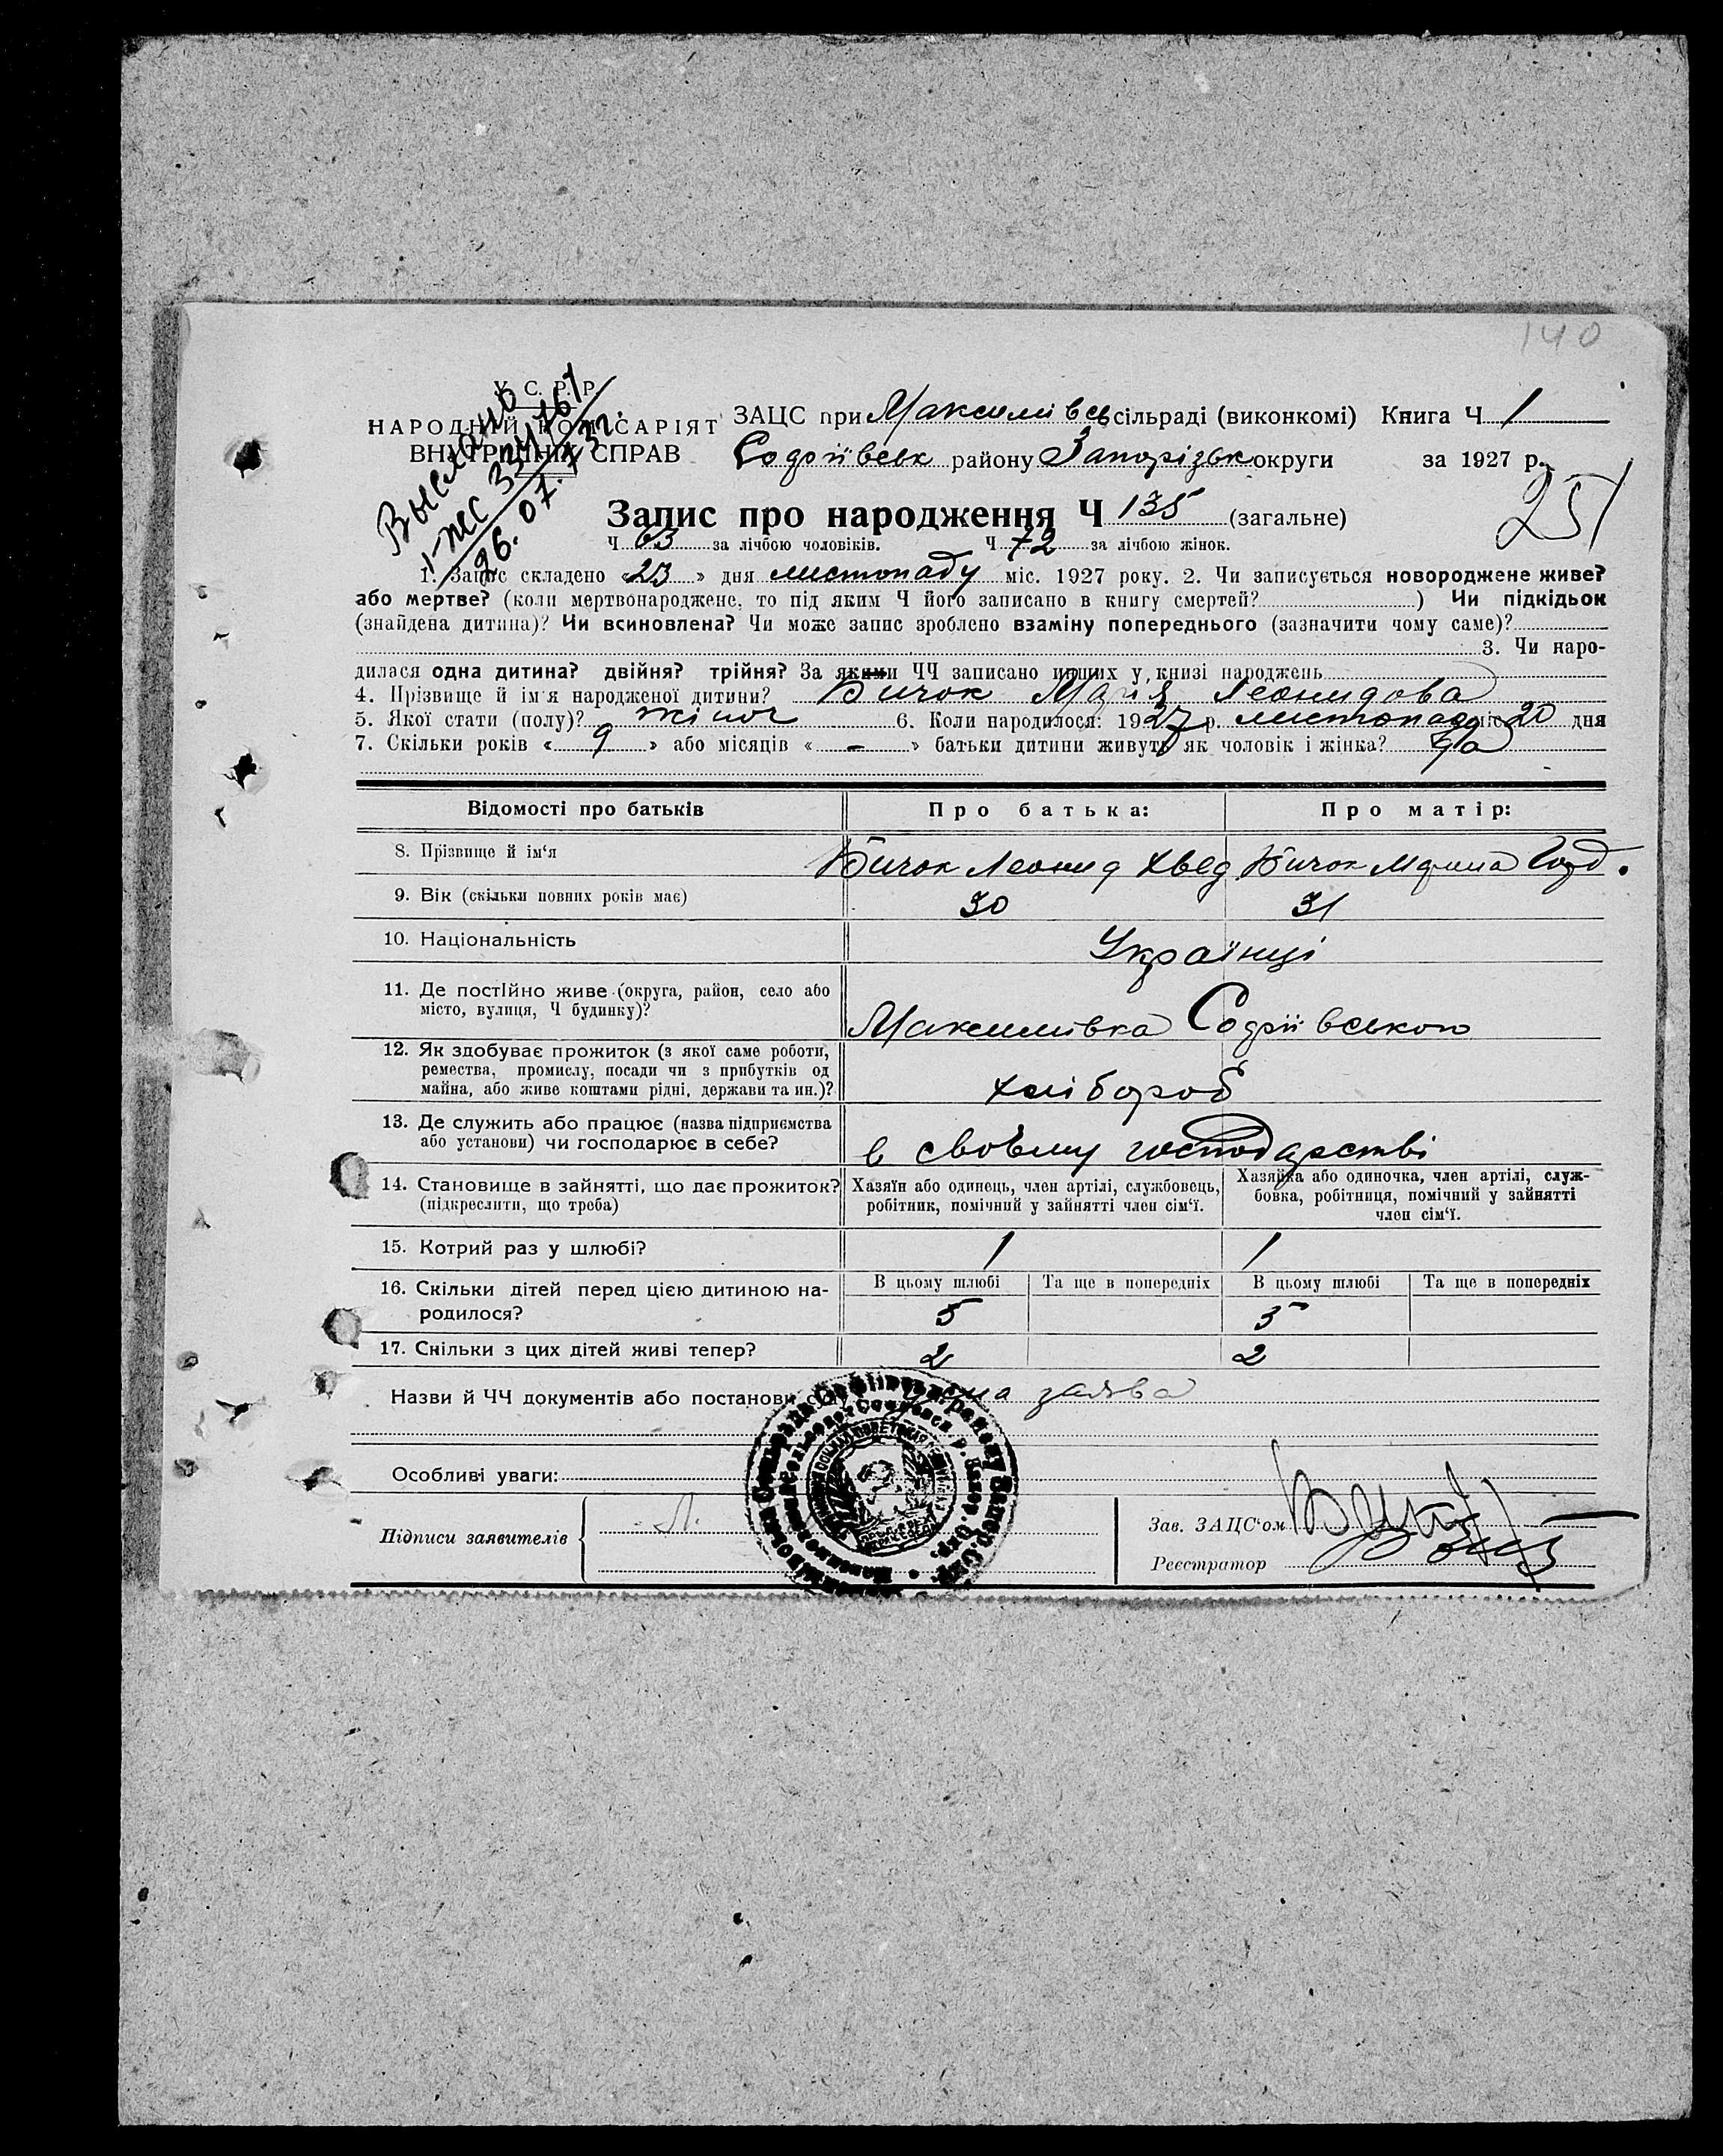 140
У. С. Р. Р.
НАРОДНІЙ КОМІСАРІЯТ
ВНУТРІШНІХ СПРАВ
Выслано
1-жс 334161
26.07.73г.
ЗАЦС при Максимівськ сільраді (виконкомі) Книга Ч 1
Софіївськ району Запорізьк округи за 1927 р.
251
Запис про народження Ч 135 (загальне)
Ч 63 за лічбою чоловіків. Ч 72 за лічбою жінок.
1. Запис складено «23» дня листопаду міс. 1927 року. 2. Чи записується новороджене живе?
або мертве? (коли мертвонароджене, то під яким Ч його записано в книгу смертей? ) Чи підкідьок
(знайдена дитина)? Чи всиновлена? Чи може запис зроблено взаміну попереднього (зазначити чому саме)?
3. Чи наро-
дилася одна дитина? двійня? трійня? За якими ЧЧ записано инших у книзі народжень
4. Прізвище й ім'я народженої дитини? Бичок Марія Леонидова
5. Якої стати (полу)? жіноч 6. Коли народилося: 1927 р. листопаду міс 20 дня
7. Скільки років « 9 » або місяців « - » батьки дитини живуть як чоловік і жінка? да
Відомості про батьків Про батька: Про матір:
8. Прізвище й ім‘я Бичок Леонид Хвед Бичок
9. Вік (скільки повних років має) 30 31
10. Національність Українці
11. Де постійно живе (округа, район, село або
місто, вулиця, Ч будинку)? Максимівка Софіївського
12. Як здобуває прожиток (з якої саме роботи,
ремества, промислу, посади чи з прибутків од
майна, або живе коштами рідні, держави та ин.)? хлібороб
13. Де служить або працює (назва підприємства
або установи) чи господарює в себе? в своєму господарстві
14. Становище в зайнятті, що дає прожиток?
(підкреслити, що треба)
Хазяїн або одинець, член артілі, службовець,
робітник, помічний у зайнятті член сім‘ї.
Хазяйка або одиночка, член артілі, служ-
бовка, робітниця, помічний у зайнятті
член сім‘ї.
15. Котрий раз у шлюбі? 1 1
16. Скільки дітей перед цією дитиною на-
родилося?
В цьому шлюбі Та ще в попередніх В цьому шлюбі Та ще в попередніх
5 5
17. Скільки з цих дітей живі тепер? 2 2
Назви й ЧЧ документів або постанови заява
Особливі уваги:
Підписи заявителів Зав. ЗАЦС‘ом
Реєстратор